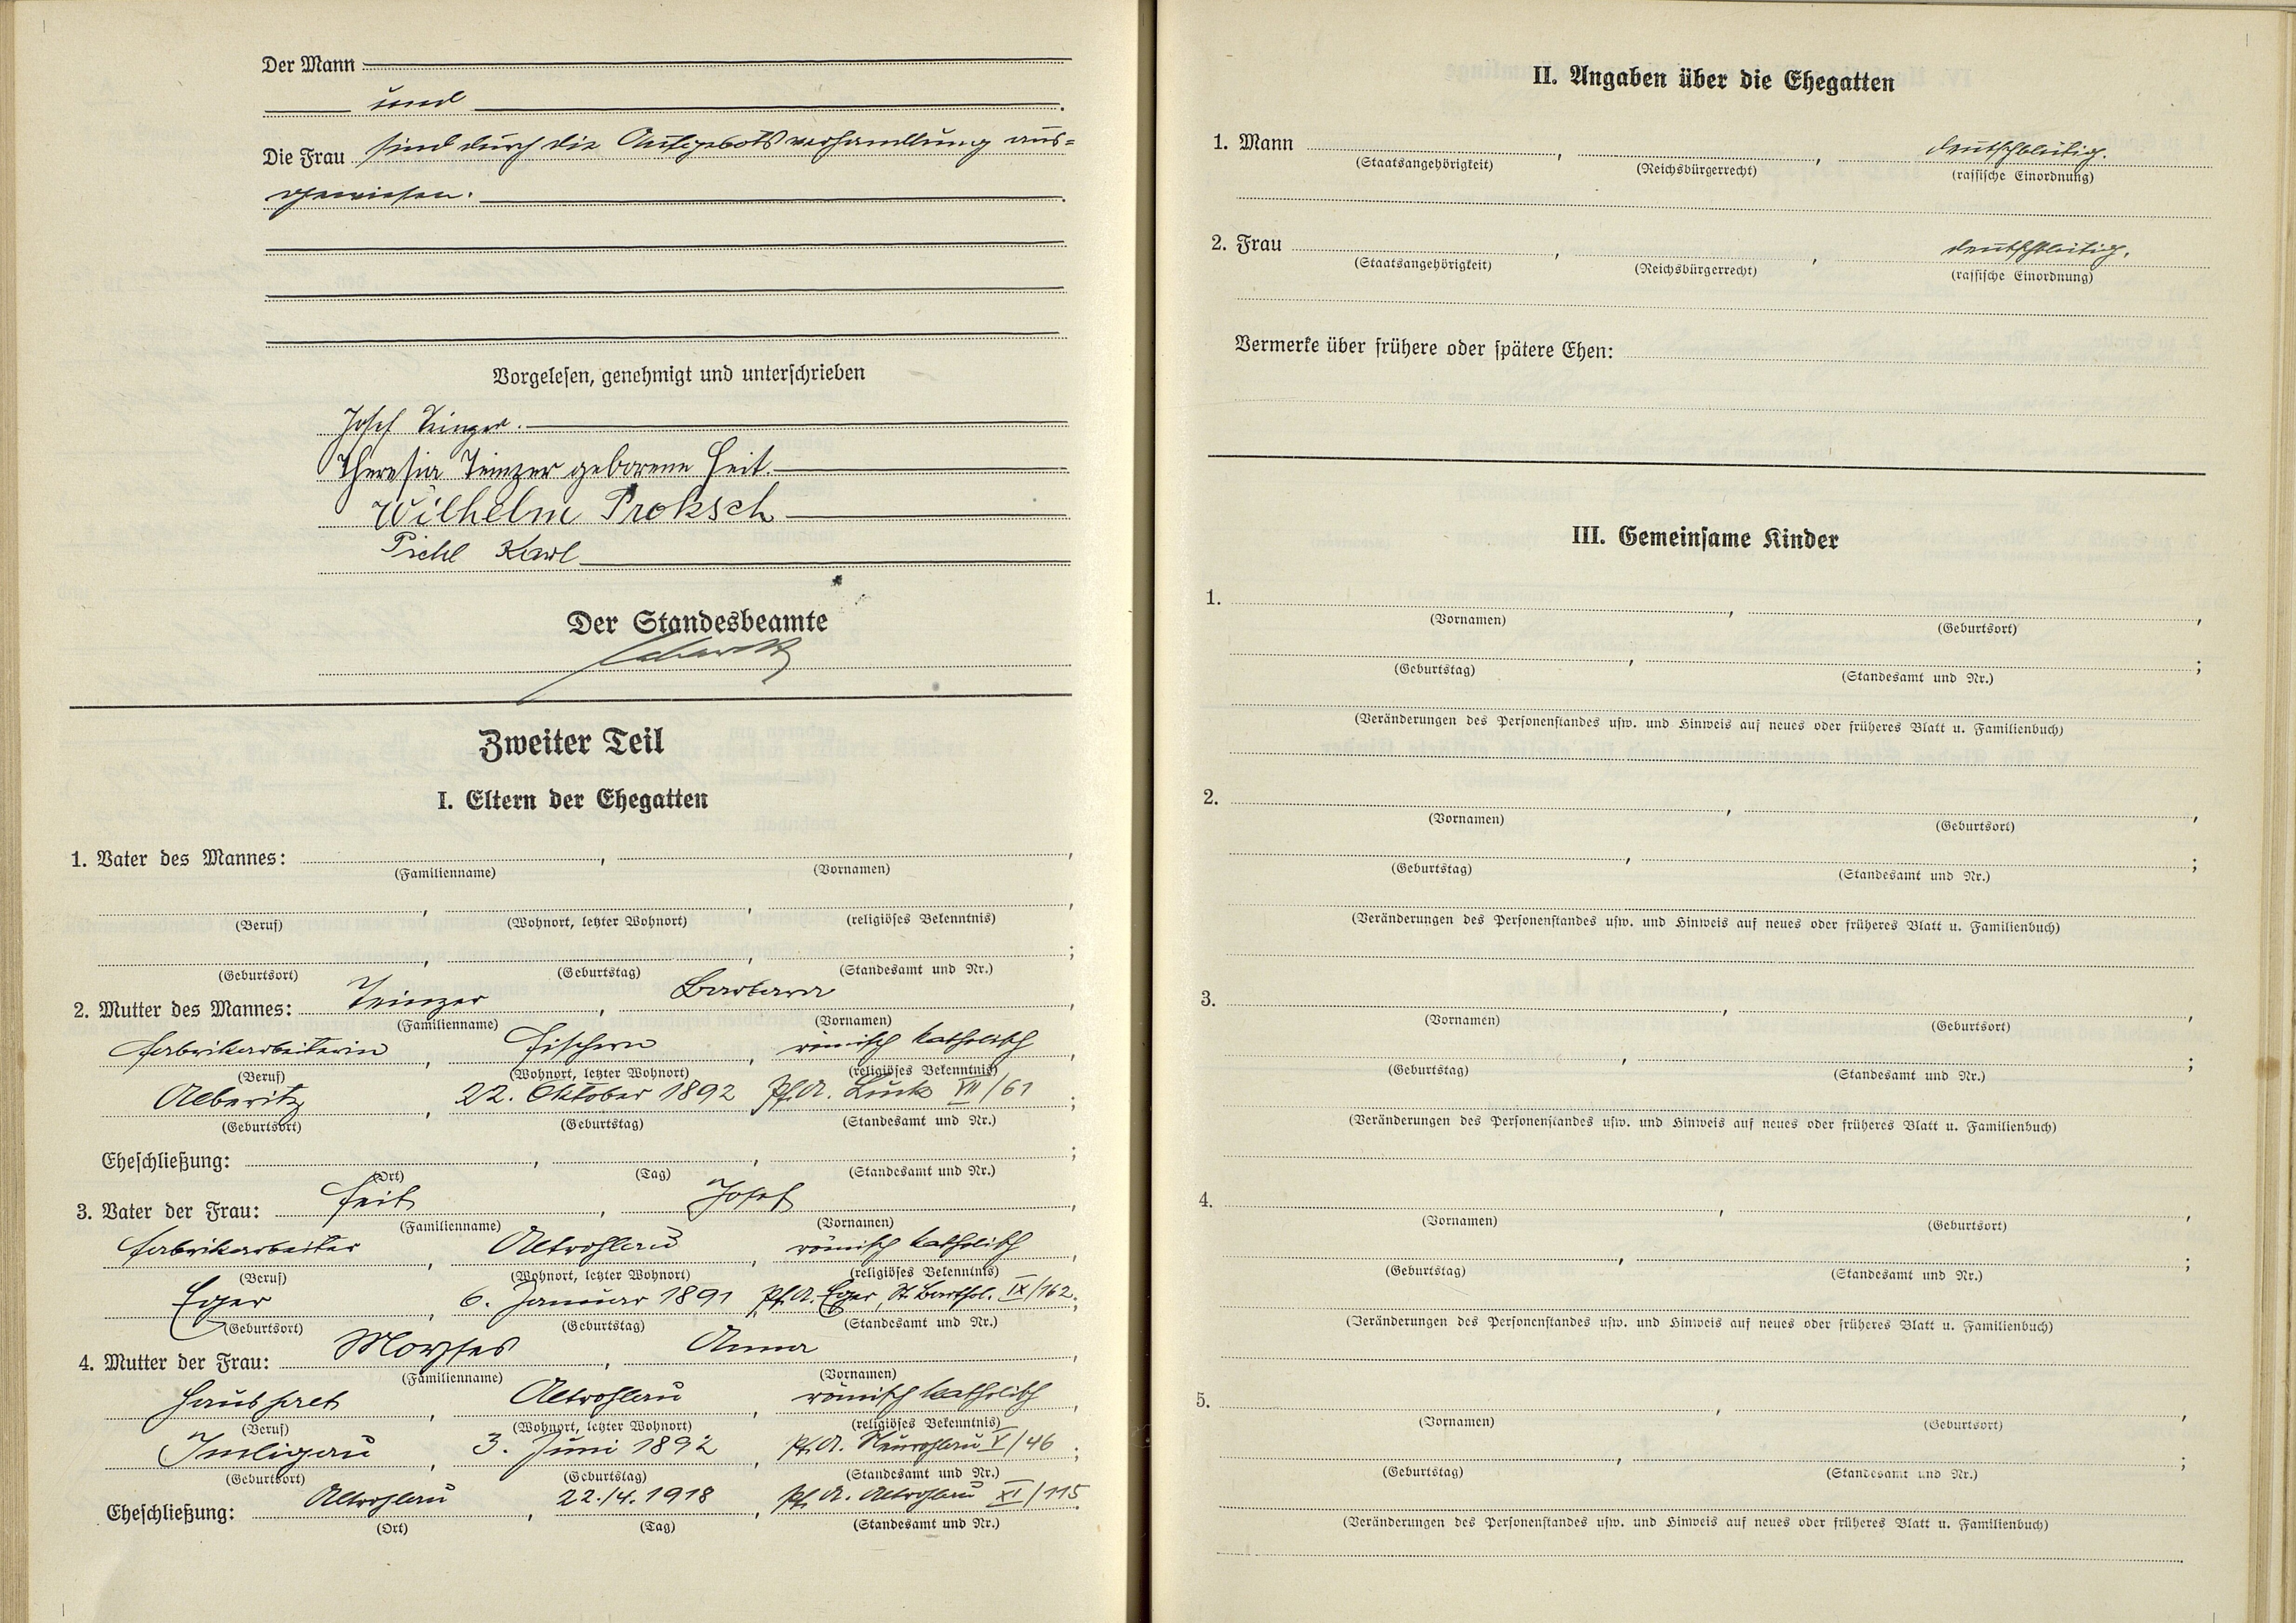 Der Mann
und
Die Frau sind durch die Aufgebotsverhandlung aus=
gewiesen.
Vorgelesen, genehmigt und unterschrieben
Josef
Theresia geborene Heit.
Wilhelm Proksch
Pichl Karl
Der Standesbeamte
Zweiter Teil
I. Eltern der Ehegatten
1. Vater des Mannes: , ,
(Familienname) (Vornamen)
, , ,
(Beruf) (Wohnort, letzter Wohnort) (religiöses Bekenntnis)
, , ;
(Geburtsort) (Geburtstag) (Standesamt und Nr.)
2. Mutter des Mannes: , Barbara ,
(Familienname) (Vornamen)
Fabrikarbeiterin , Fischern , römisch katholisch ,
(Beruf) (Wohnort, letzter Wohnort) (religiöses Bekenntnis)
Alberitz , 22. Oktober 1892 Pf.A. Luck VII/61 ;
(Geburtsort) (Geburtstag) (Standesamt und Nr.)
Eheschließung: , , ;
(Ort) (Tag) (Standesamt und Nr.)
3. Vater der Frau: Heit , Josef ,
(Familienname) (Vornamen)
Fabrikarbeiter , Altrohlau , römisch katholisch ,
(Beruf) (Wohnort, letzter Wohnort) (religiöses Bekenntnis)
Eger , 6. Januar 1891 Pf.A. Eger, St. Barthol. IX/162 ;
(Geburtsort) (Geburtstag) (Standesamt und Nr.)
4. Mutter der Frau: , Anna ,
(Familienname) (Vornamen)
Haushalt , Altrohlau , römisch katholisch ,
(Beruf) (Wohnort, letzter Wohnort) (religiöses Bekenntnis)
Imligau , 3. Juni 1892 , Pf.A. Neurohlau V/46 ;
(Geburtsort) (Geburtstag) (Standesamt und Nr.)
Eheschließung: Altrohlau , 22./4.1918 , Pf.A. Altrohlau XI/115 ;
(Ort) (Tag) (Standesamt und Nr.)
II. Angaben über die Ehegatten
1. Mann , , deutschblütig.
(Staatsangehörigkeit) (Reichsbürgerrecht) (rassische Einordnung)
2. Frau , , deutschblütig.
(Staatsangehörigkeit) (Reichsbürgerrecht) (rassische Einordnung)
Vermerke über frühere oder spätere Ehen:
III. Gemeinsame Kinder
1. , ,
(Vornamen) (Geburtsort)
, ;
(Geburtstag) (Standesamt und Nr.)
(Veränderungen des Personenstandes usw. und Hinweis auf neues oder früheres Blatt u. Familienbuch)
2. , ,
(Vornamen) (Geburtsort)
, ;
(Geburtstag) (Standesamt und Nr.)
(Veränderungen des Personenstandes usw. und Hinweis auf neues oder früheres Blatt u. Familienbuch)
3. , ,
(Vornamen) (Geburtsort)
, ;
(Geburtstag) (Standesamt und Nr.)
(Veränderungen des Personenstandes usw. und Hinweis auf neues oder früheres Blatt u. Familienbuch)
4. , ,
(Vornamen) (Geburtsort)
, ;
(Geburtstag) (Standesamt und Nr.)
(Veränderungen des Personenstandes usw. und Hinweis auf neues oder früheres Blatt u. Familienbuch)
5. , ,
(Vornamen) (Geburtsort)
, ;
(Geburtstag) (Standesamt und Nr.)
(Veränderungen des Personenstandes usw. und Hinweis auf neues oder früheres Blatt u. Familienbuch)